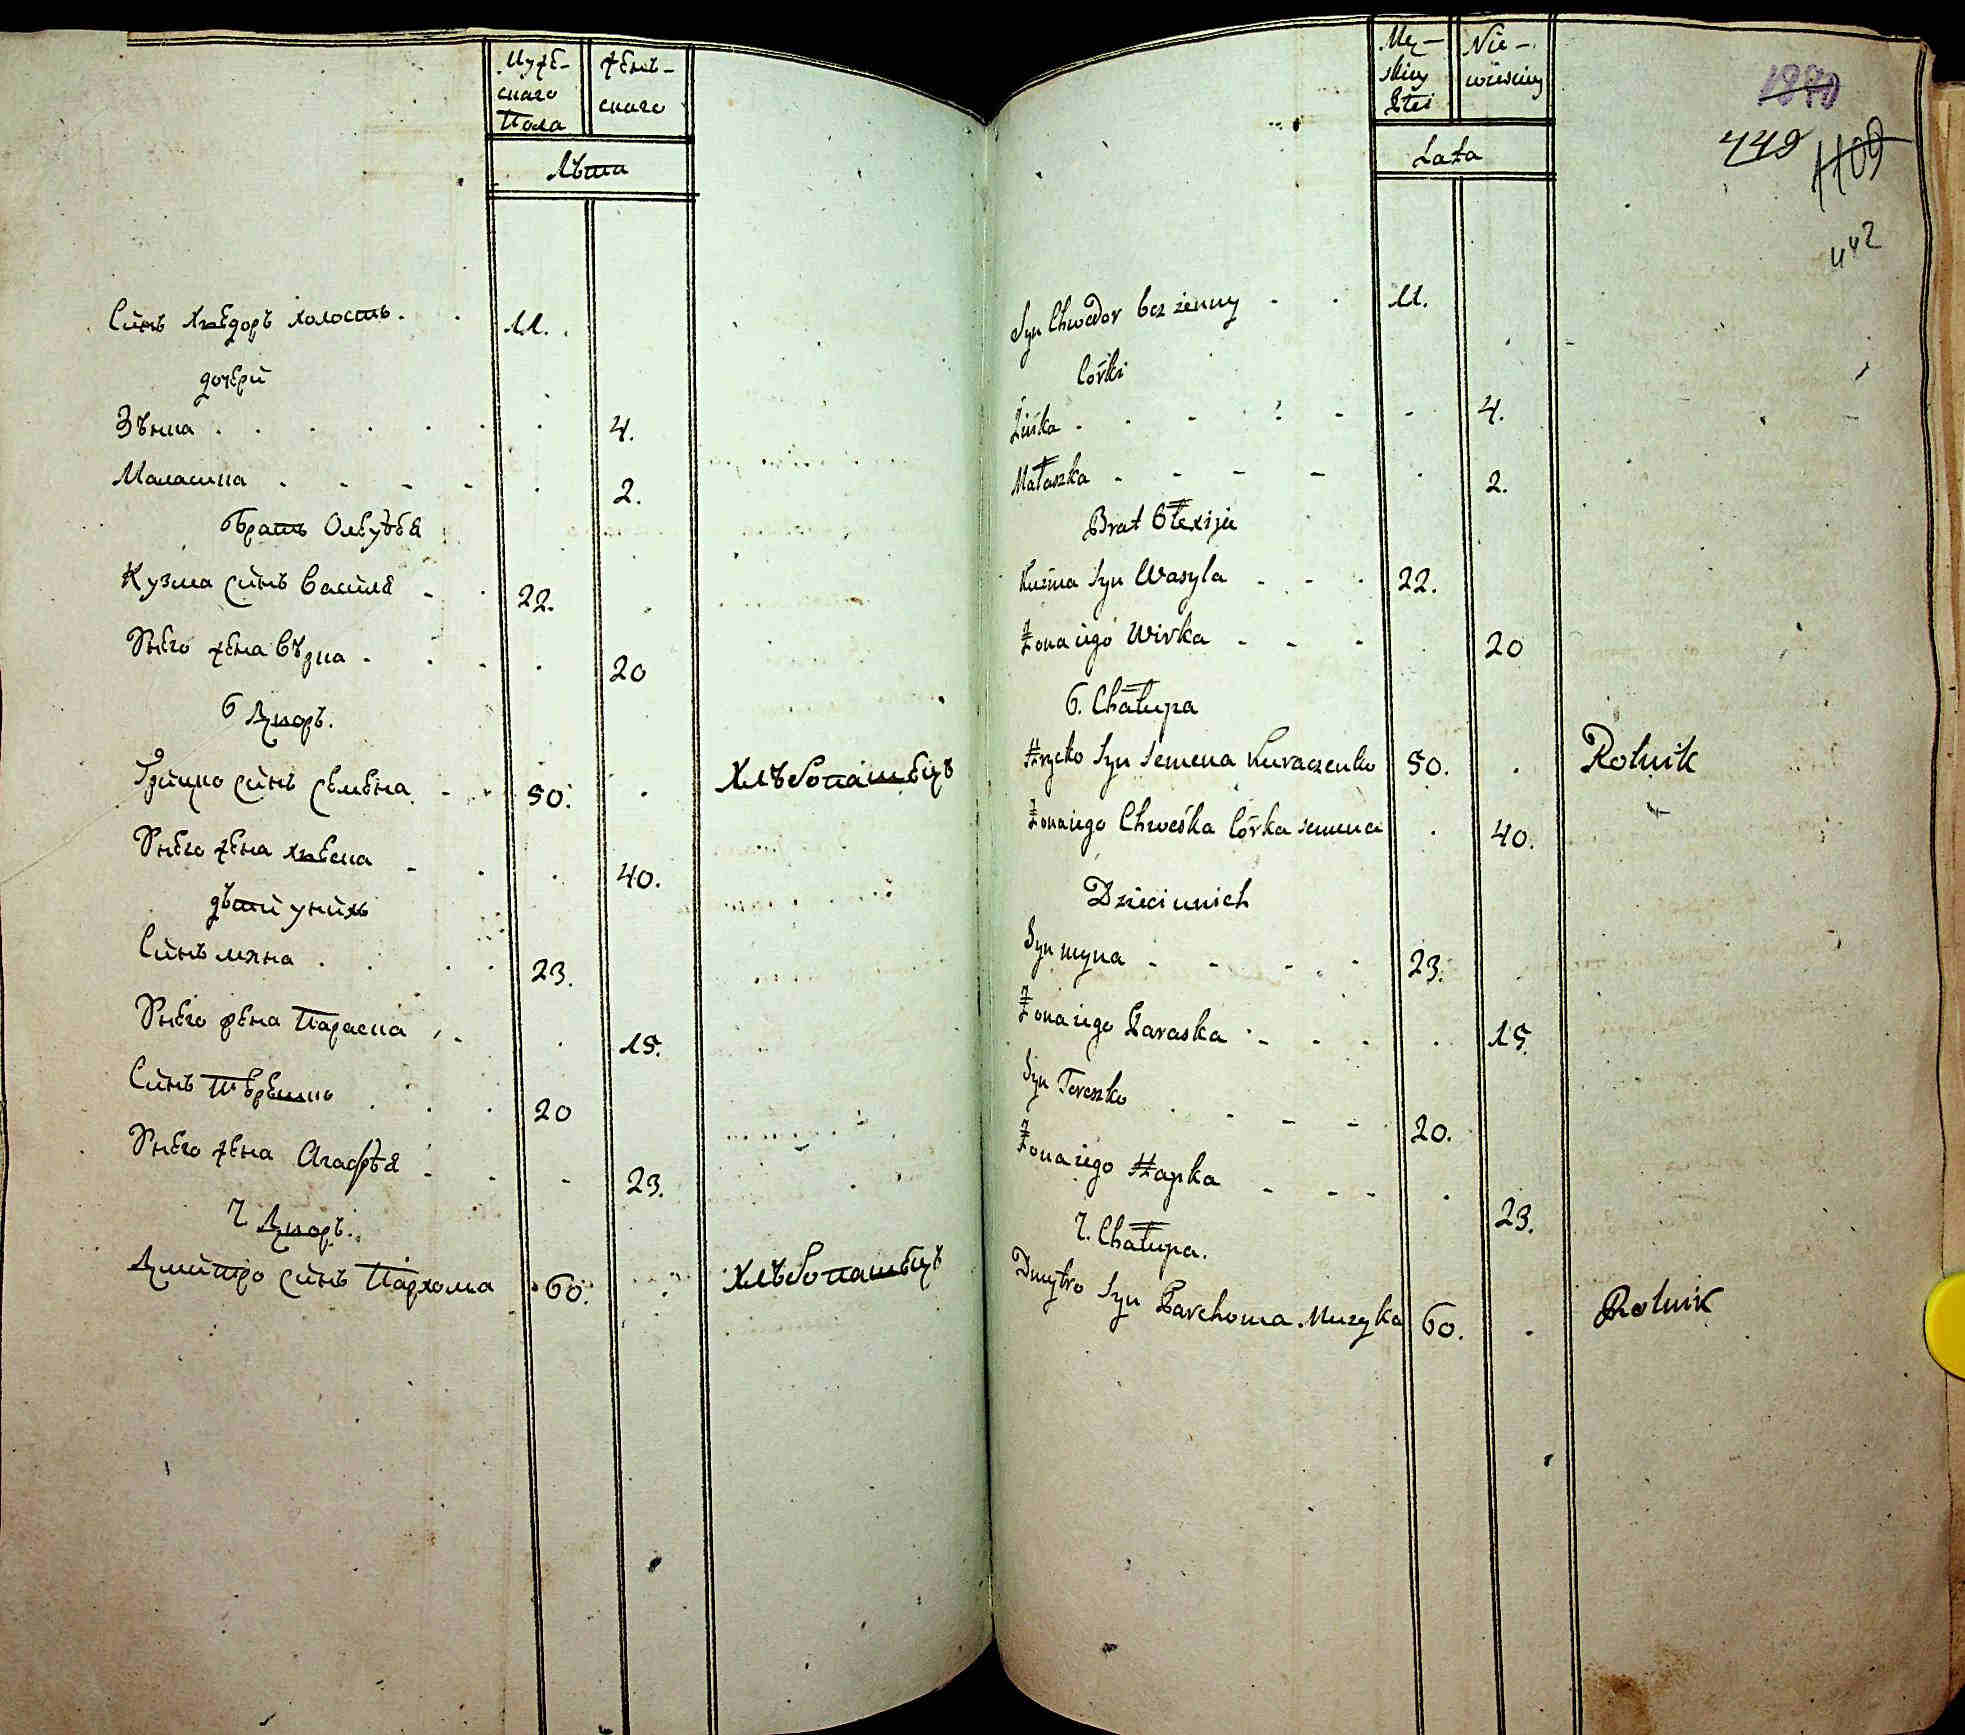 Муже-
скаго
Пола
жень-
скаго
Лѣта
Синъ Хведоръ холостъ . . 11.
дочери
Зѣнка . . . . . . . 4.
Малашка . . . . . 2.
братъ Олексѣя
Кузма синъ василя . . 22.
У него жена вѣрка . . . . 20
6 Дворъ.
Грицко синъ семена . . 50. . Хлѣбопашецъ
У него жена хвеска . . . 40.
дѣти унихъ
Синъ мина . . . . 23.
У него жена Параска . . . 15.
Синъ Терешко . . . 20
У него жена Агафѣя . . . 23.
7 Дворъ.
Дмитро синъ Пархома . 60. . Хлѣбопашецъ
Mę-
skiey
Płci
Nie-
wieściey
Lata
1880
449
1109
442
Syn Chwedor bez żenny . . 11.
Córki
Zińka . . . . . . . 4.
Małaszka . . . . . 2.
Brat Ołexija
Kuźma Syn Wasyla . . . 22.
Żona iego Wirka . . . . 20
6. Chałupa
Hrycko Syn Semena Kuraczenko 50. . Rolnik
Żona iego Chweśka Córka semena . 40.
Dzieci unich
Syn myna . . . . . 23.
Żona iego Paraska . . . . . 15.
Syn Tereszko . . . . 20.
Żona iego Hapka . . . . 23.
7. Chałupa.
Dmytro Syn Parchoma Muzyka 60. . Rolnik